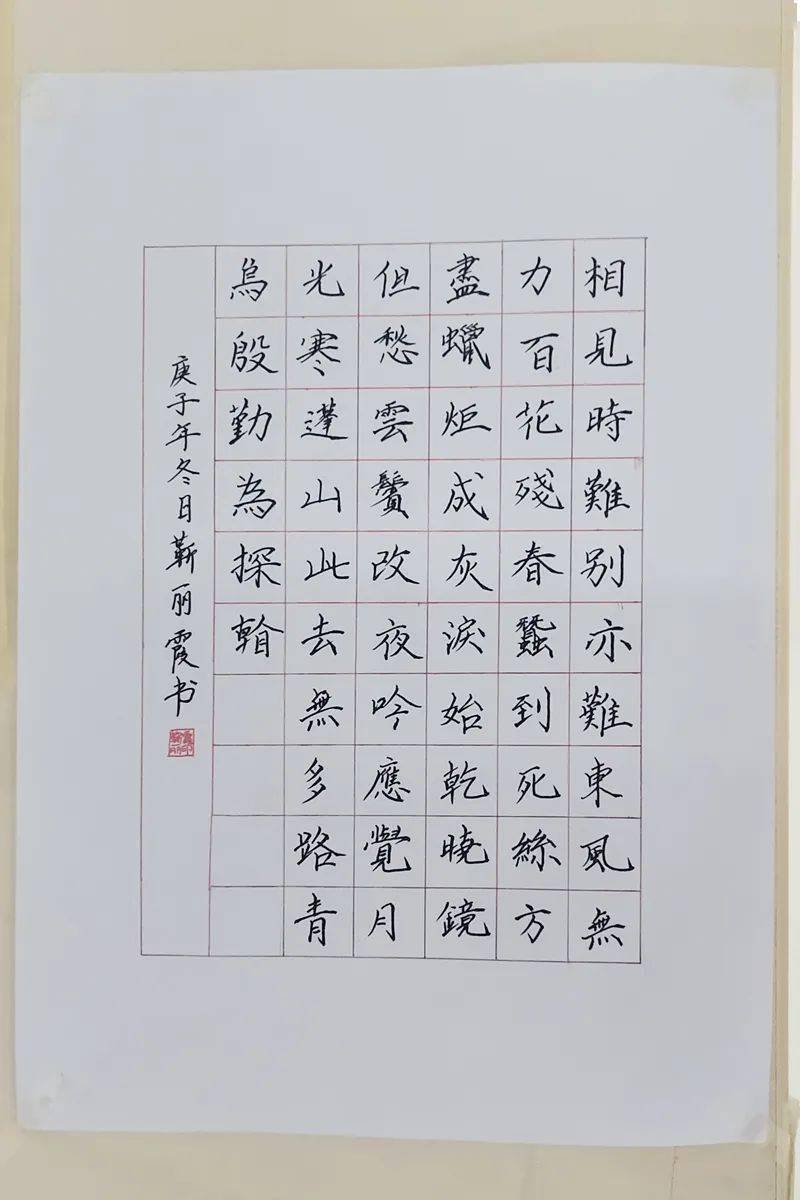 相見時難别亦難東風無
力百花殘春蠶到死絲方
盡蠟炬成灰淚始乾曉鏡
但愁雲鬢改夜吟應覺月
光寒蓬山此去無多路青
鳥殷勤為探
庚子年冬日靳丽霞书